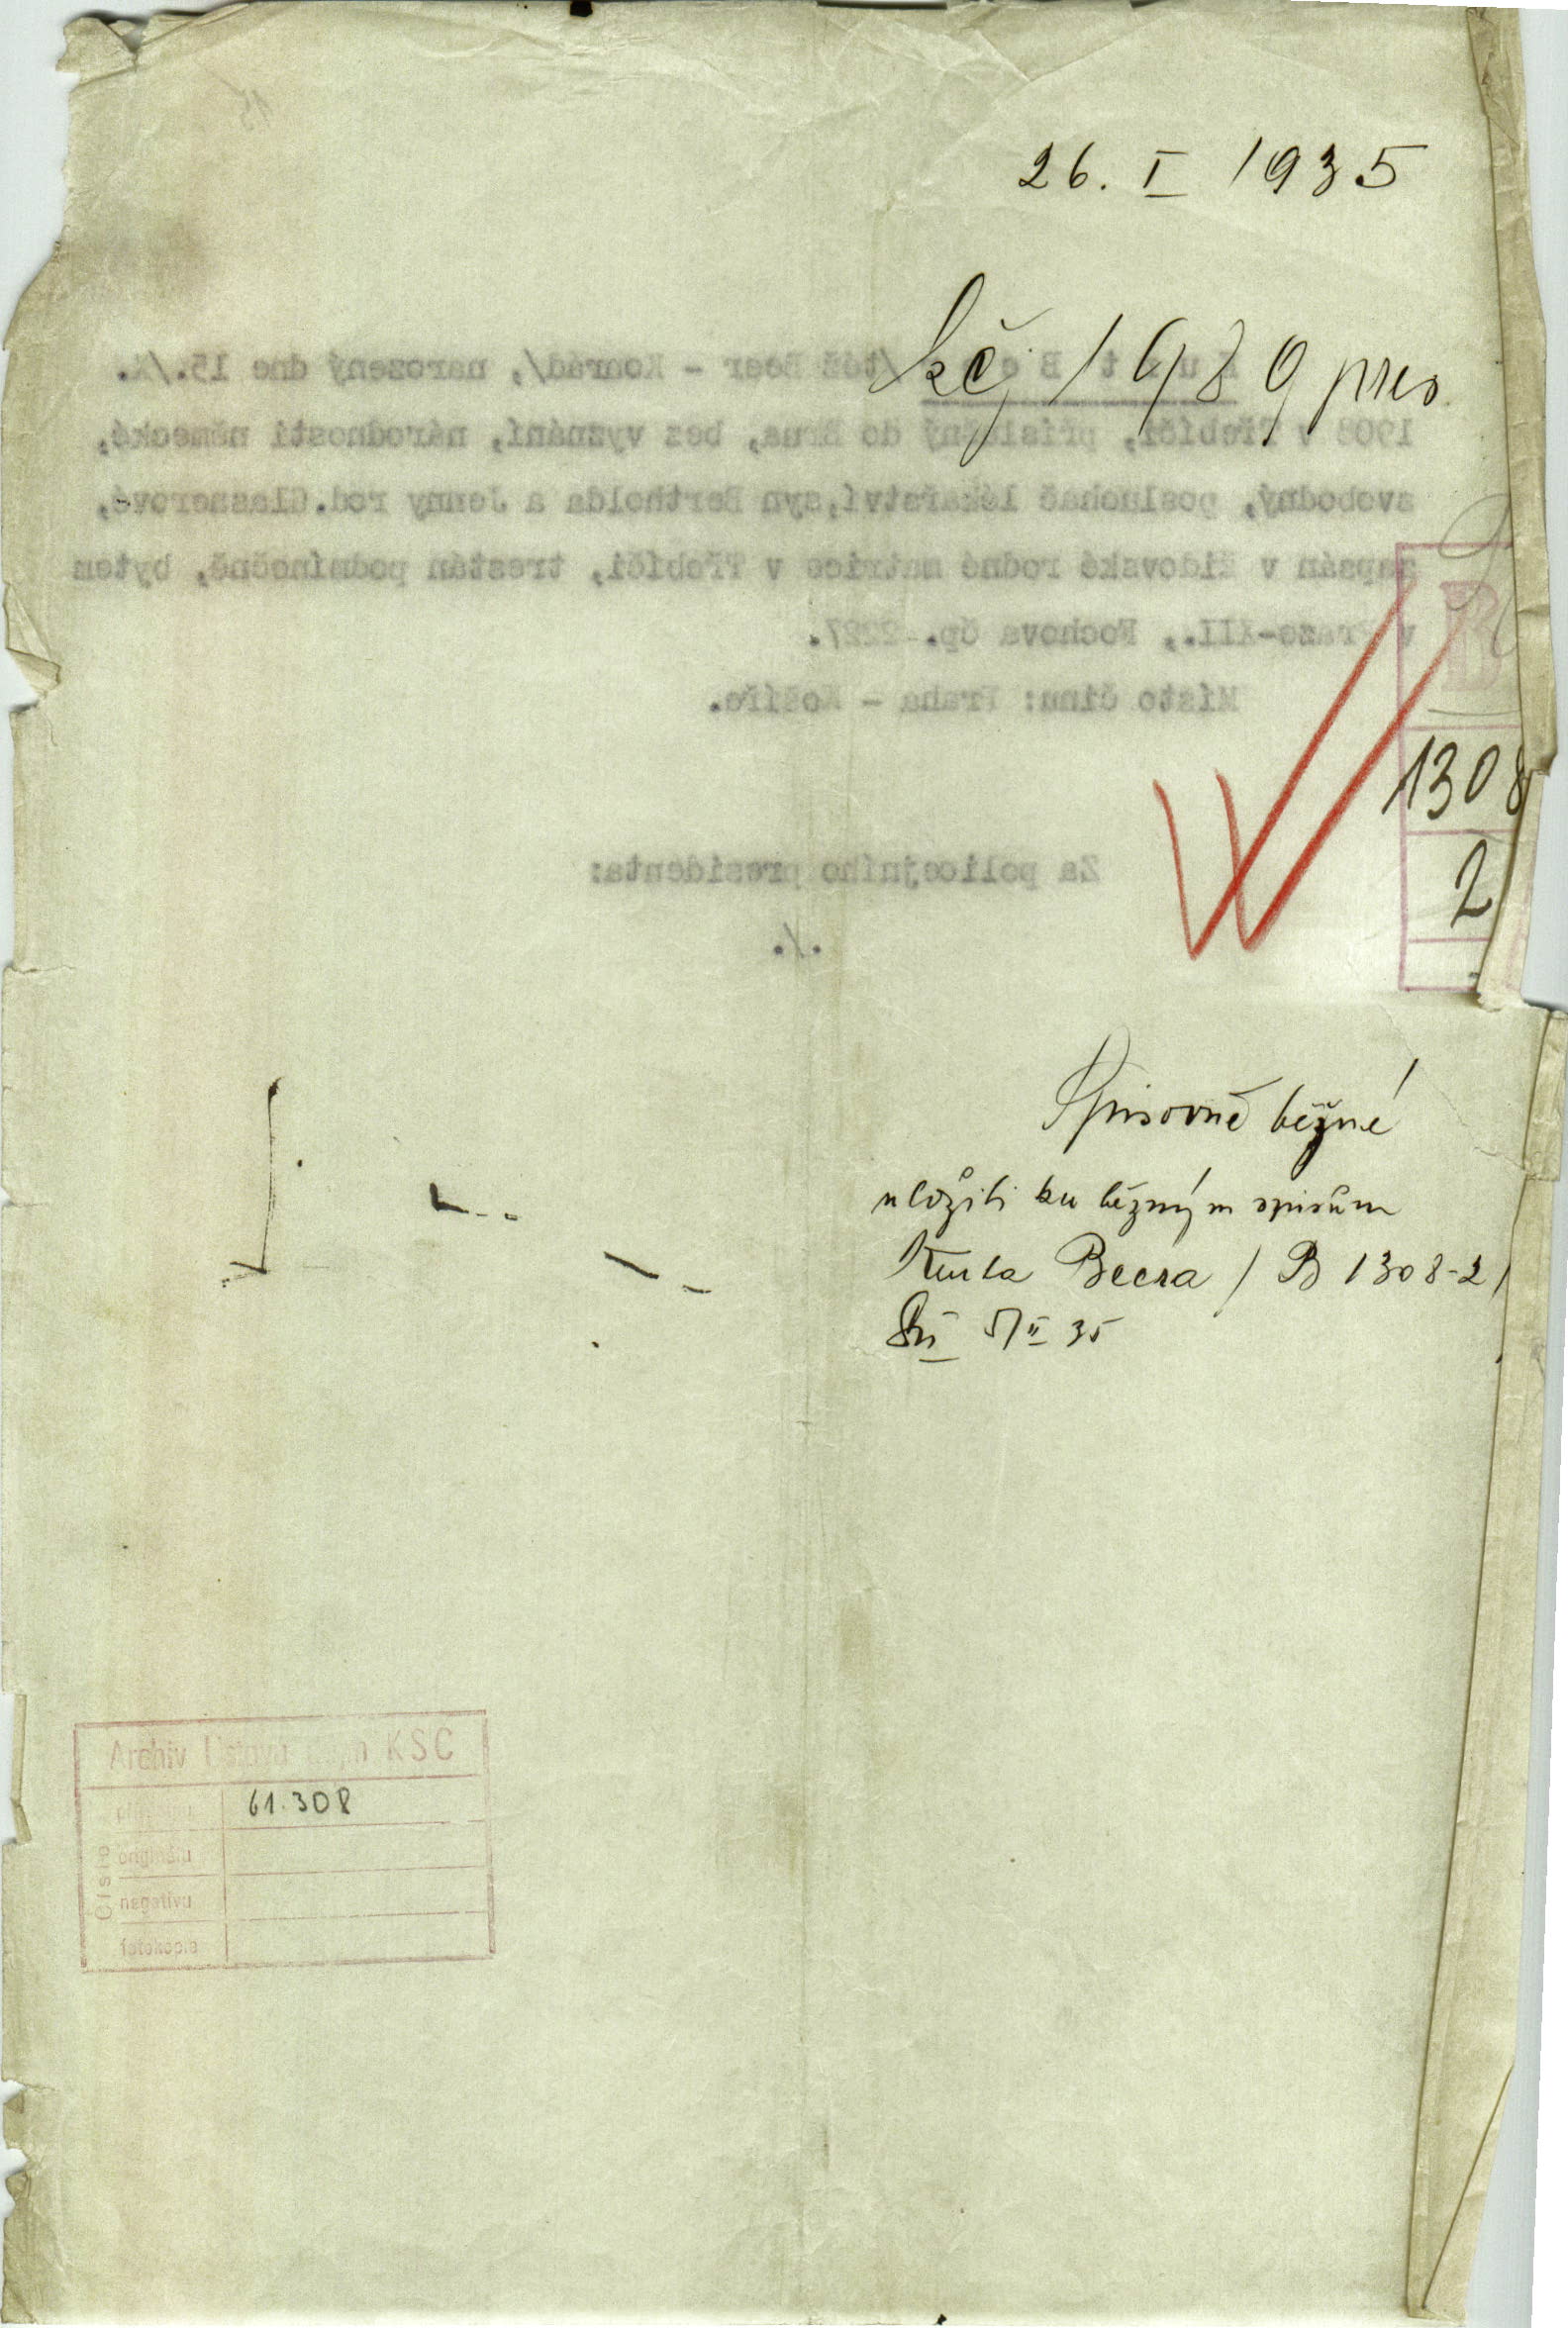 26. I 1935
kčj 1989 pres.
Kurt Beer /též Beer - Konrád/, narozený dne 15./X.
1908 v Třebíči, příslušný do Brna, bez vyznání, národnosti německé,
svobodný, posluchač lékařství, syn Bertholda a Jenny rod. Glasnerové,
zapsán v židovské rodné matrice v Třebíči, trestán podmínečně, bytem
v Praze-XII., Fochova čp. 2227.
Místo činu: Praha - Košíře.
B
1308
2
Za policejního presidenta:
./.
Spisovně běžné
uložiti ku běžným spisům
Kurta Beera / B 1308-2/
5/II 35
Archiv Ústavu dějin KSČ
Číslo
přípisu 61.308
originálu
negativu
fotokopie